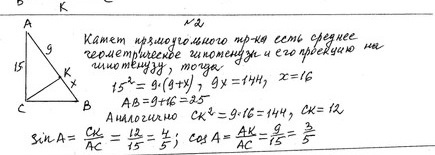 К
№2
Катет прямоугольного тр-ка есть среднее
геометрическое гипотенузы и его проекцию на
гипотенузу, тогда
15² = 9·(9+x), 9x=144, x=16
AB=9+16=25
Аналогично CK²=9·16=144, CK=12
sin A = CK/AC = 12/15 = 4/5; cos A = AK/AC = 9/15 = 3/5
A
9
15
K
x
C
B